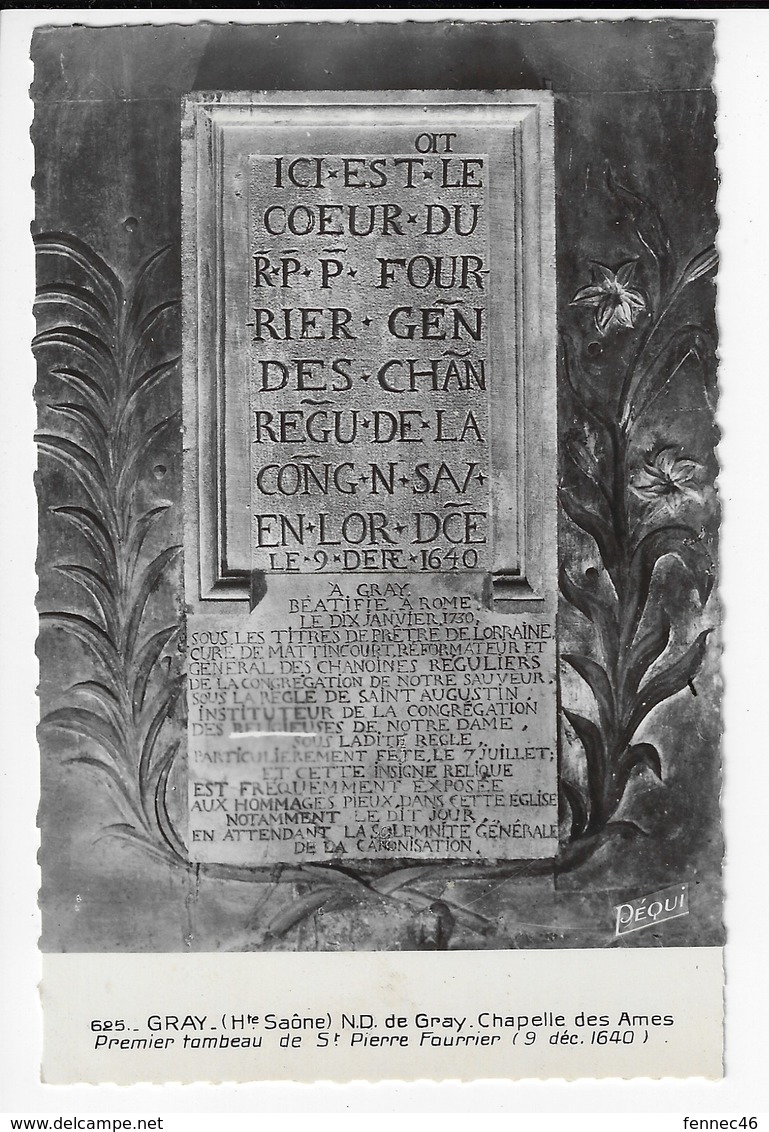 OIT
ICI EST LE
COEUR DU
R̃ P P̃ FOUR
RIER GEÑ
DES CHAÑ
REG̃U DE LA
COÑG N SAV
EN LOR DC̃E
LE 9 DEPE 1640
A GRAY
BÉATIFIÉ A ROME
LE DIX JANVIER 1730,
SOUS LES TITRES DE PRÊTRE DE LORRAINE,
CURÉ DE MATTINCOURT, RÉFORMATEUR ET
GÉNÉRAL DES CHANOINES RÉGULIERS
DE LA CONGRÉGATION DE NOTRE SAUVEUR,
SOUS LA RÈGLE DE SAINT AUGUSTIN,
INSTITUTEUR DE LA CONGRÉGATION
DES RELIGIEUSES DE NOTRE DAME,
SOUS LADITE RÈGLE,
PARTICULIÈREMENT FÊTÉ, LE 7 JUILLET;
ET CETTE INSIGNE RELIQUE
EST FRÉQUEMMENT EXPOSÉE
AUX HOMMAGES PIEUX, DANS CETTE ÉGLISE
NOTAMMENT LE DIT JOUR,
EN ATTENDANT LA SOLEMNITÉ GÉNÉRALE
DE LA CANONISATION.
PÉQUI
625._ GRAY_(Hte Saône) N.D. de Gray. Chapelle des Ames
Premier tombeau de St Pierre Fourrier (9 déc. 1640).
fennec46
delcampe.net